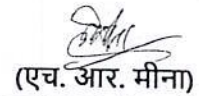 (एच. आर. मीना)